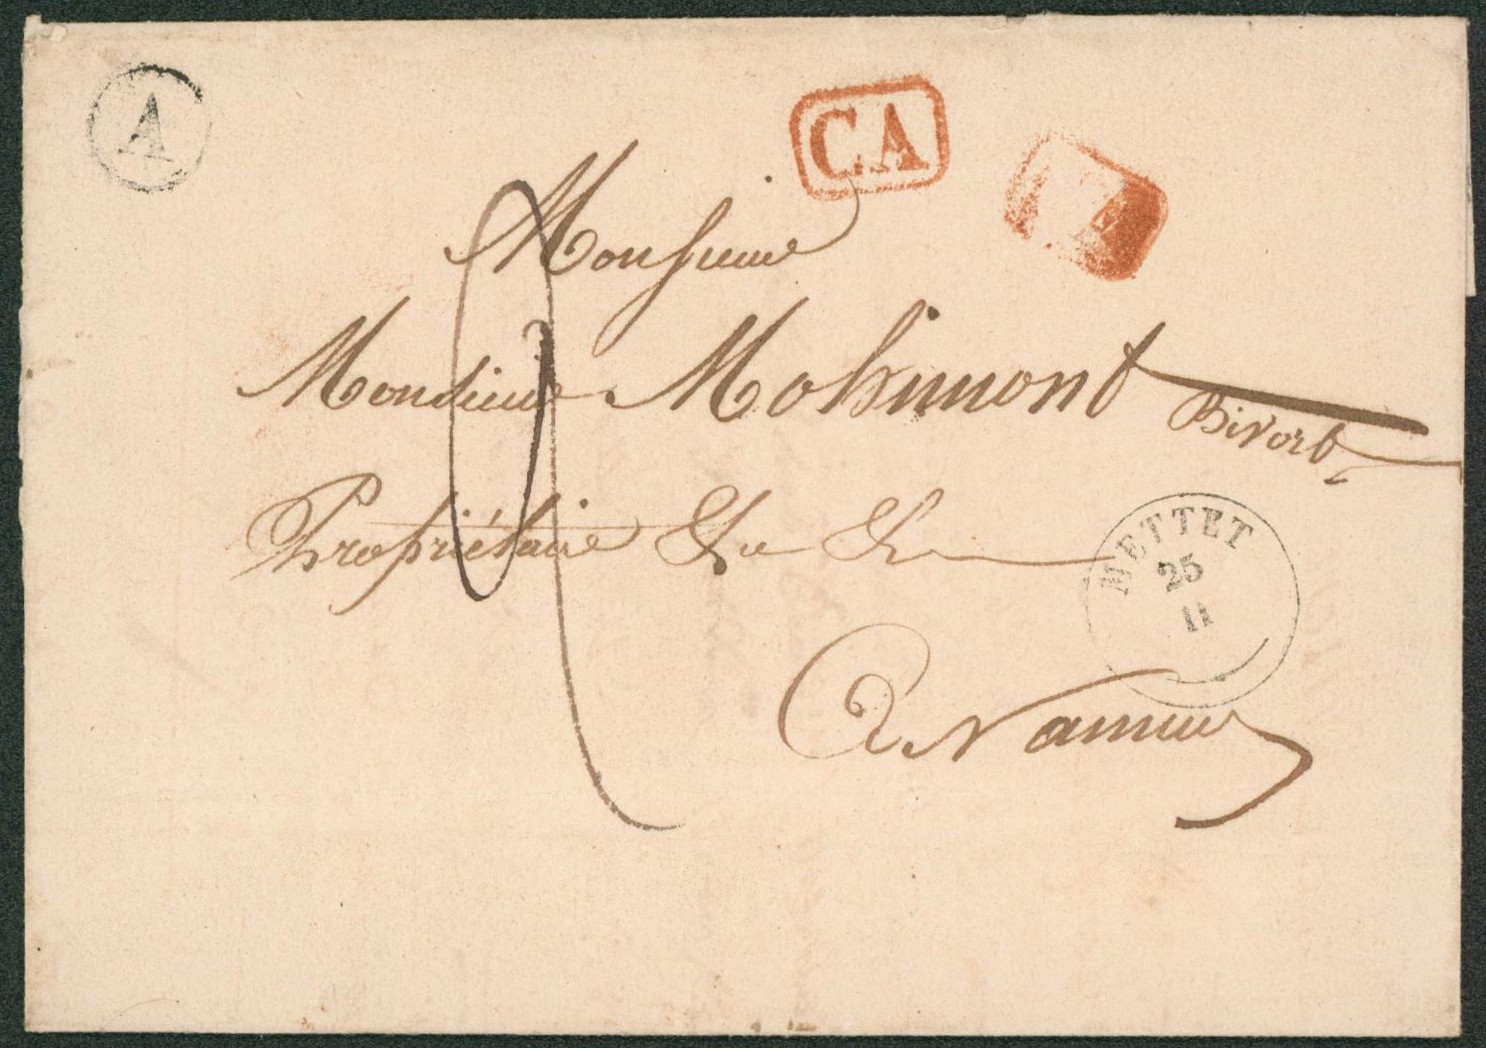 A
CA
Monsieur
Monsieur Mohimont Bivort
Propriétaire &a &a
METTET
25
11
A Namur